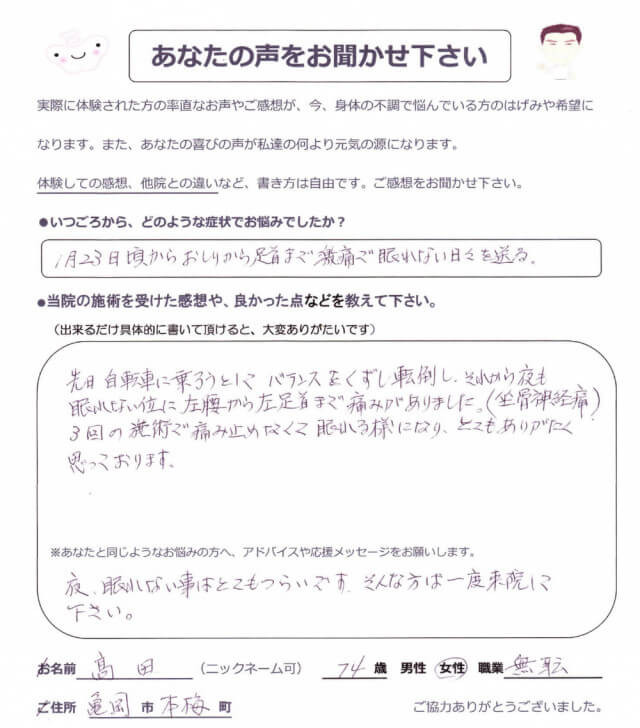 あなたの声をお聞かせ下さい
実際に体験された方の率直なお声やご感想が、今、身体の不調で悩んでいる方のはげみや希望に
なります。また、あなたの喜びの声が私達の何より元気の源になります。
体験しての感想、他院との違いなど、書き方は自由です。ご感想をお聞かせ下さい。
●いつごろから、どのような症状でお悩みでしたか？
1月23日頃からおしりから足首まで激痛で眠れない日々を送る。
●当院の施術を受けた感想や、良かった点などを教えて下さい。
（出来るだけ具体的に書いて頂けると、大変ありがたいです）
先日自転車に乗ろうとしてバランスをくずし転倒し、それから夜も
眠れない位に左腰から左足首まで痛みがありました。（坐骨神経痛）
3回の施術で痛み止めなくて眠れる様になり、とてもありがたく
思っております。
※あなたと同じようなお悩みの方へ、アドバイスや応援メッセージをお願いします。
夜、眠れない事はとてもつらいです。そんな方は一度来院して
下さい。
お名前 髙田 （ニックネーム可） 74 歳 男性 女性 職業 無職
ご住所 亀岡 市 本梅 町
ご協力ありがとうございました。